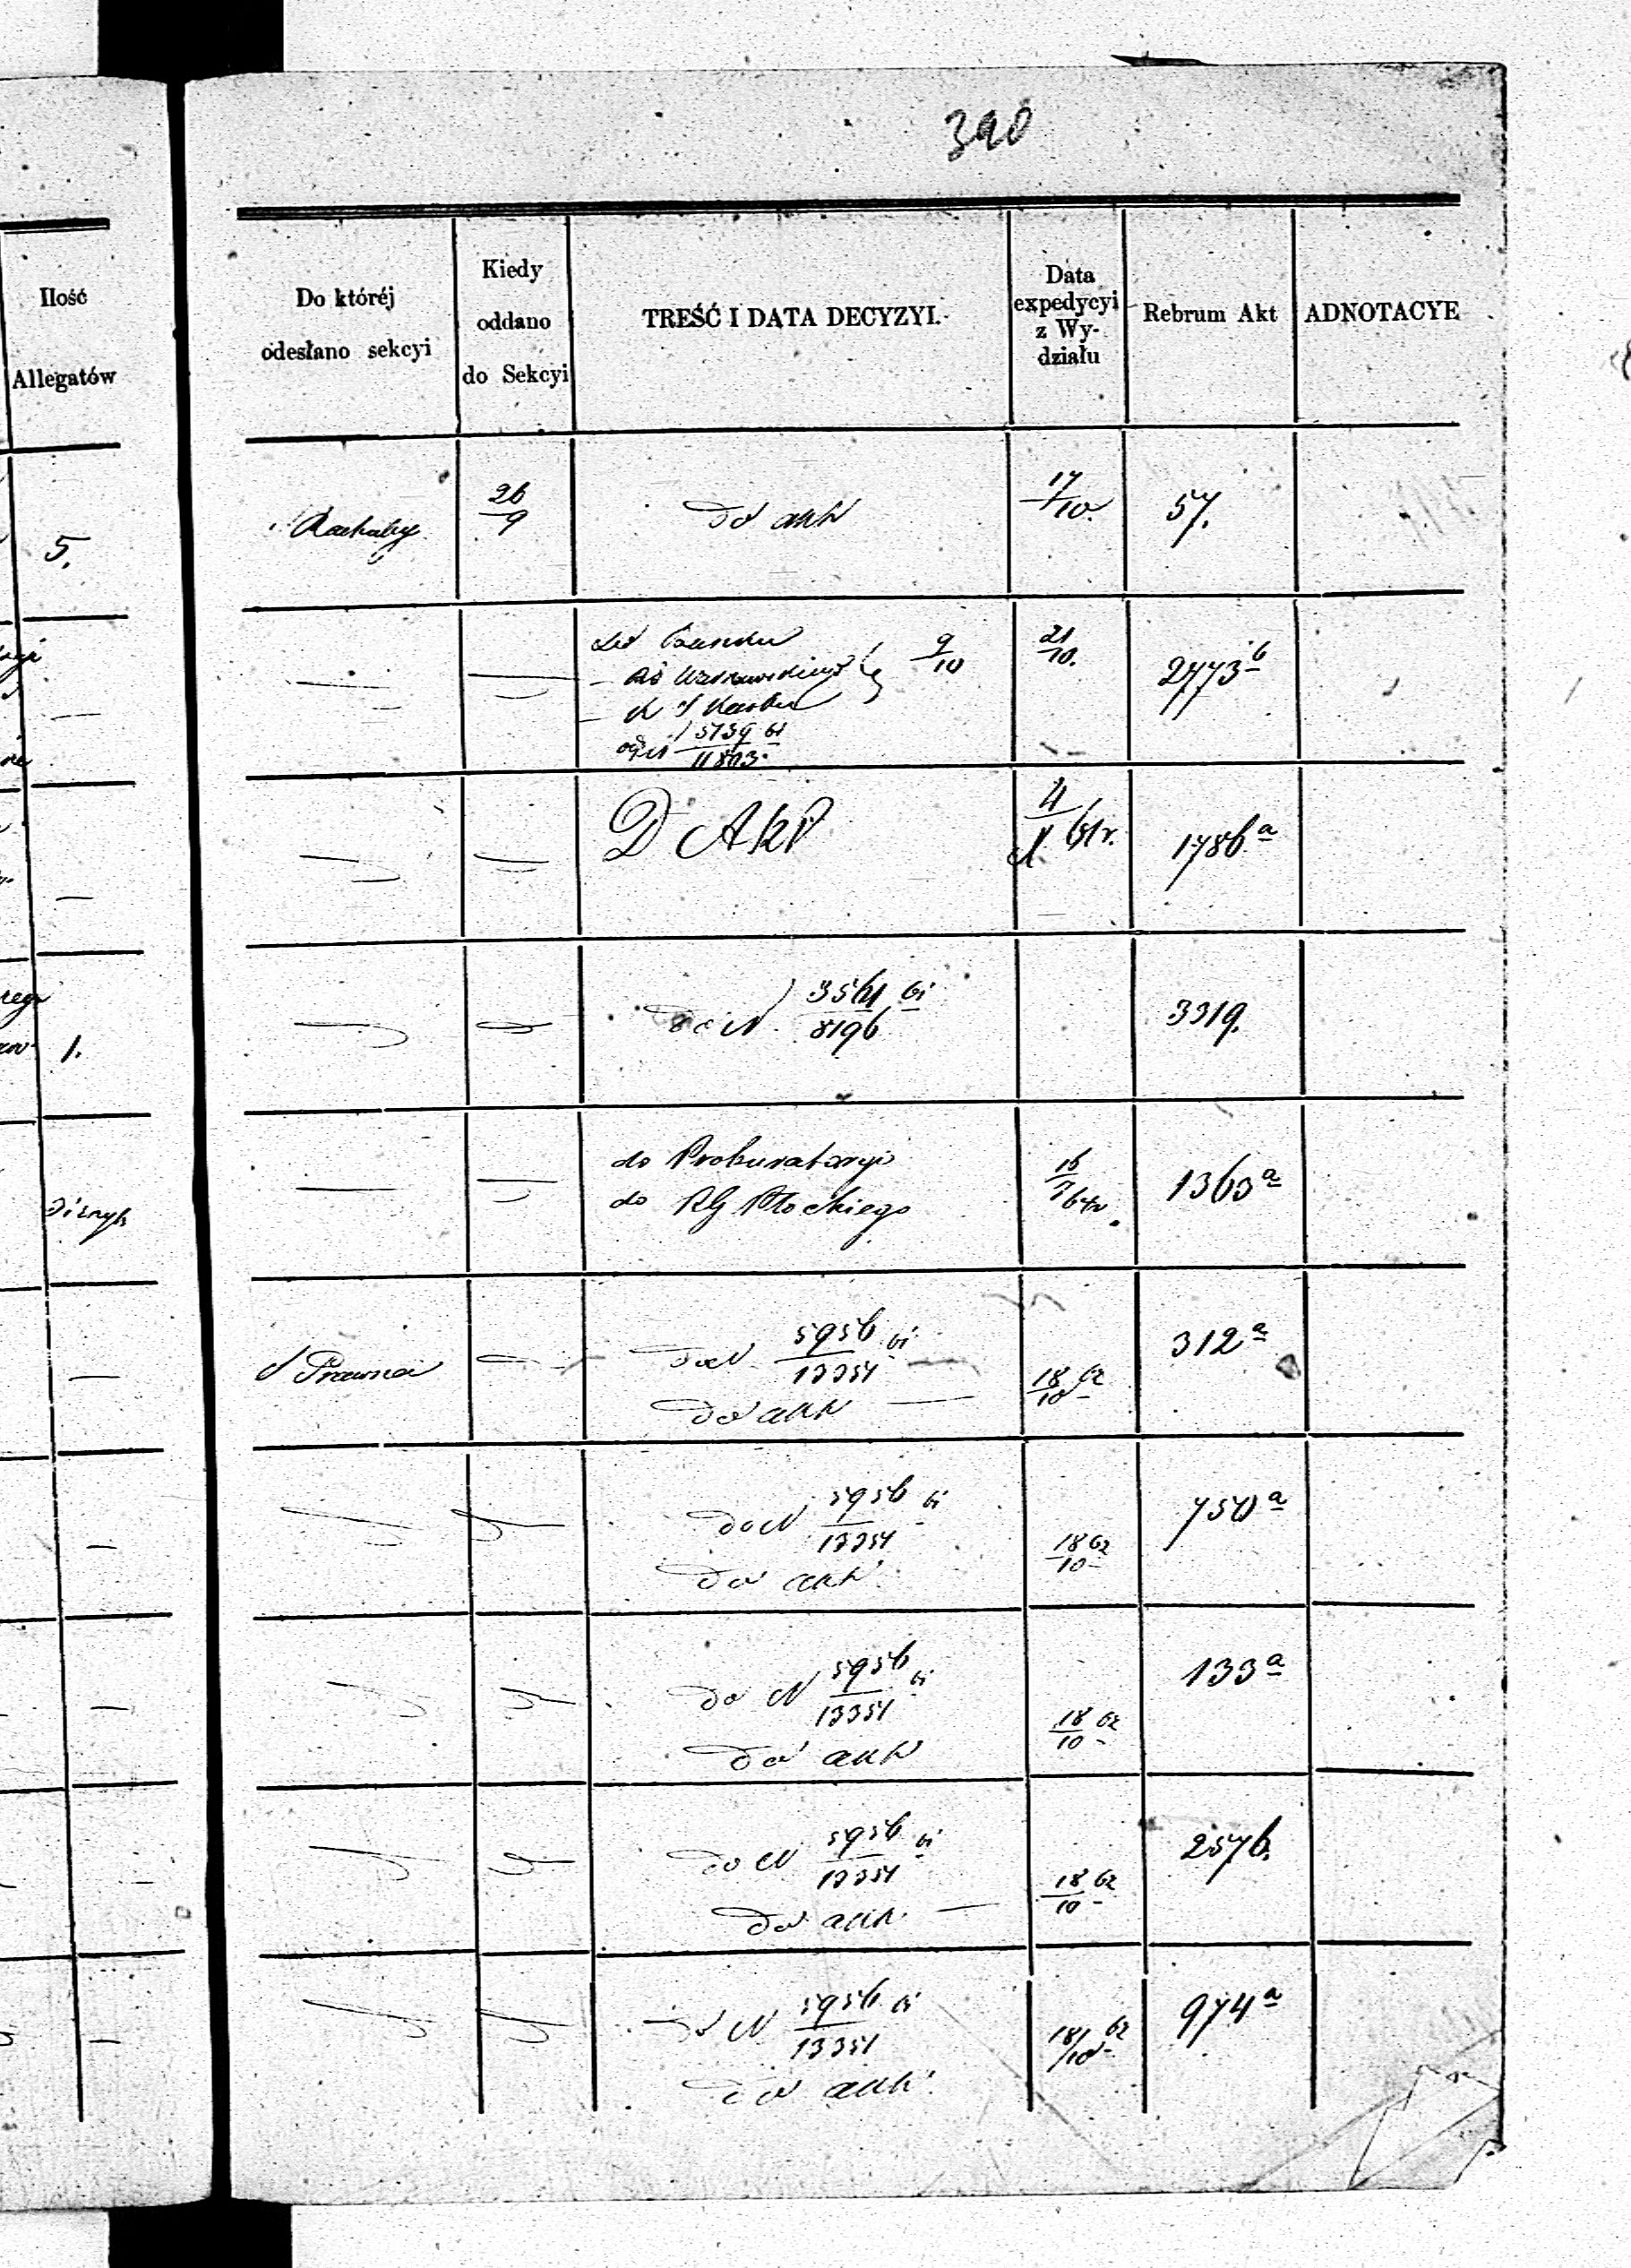 390
Ilość
Allegatów
Do któréj
odesłano sekcyi
Kiedy
oddano
do Sekcyi
TREŚĆ I DATA DECYZYI.
Data
expedycyi
z Wy-
działu
Rebrum Akt
ADNOTACYE
5.
Rachuby
26/9
do akt
17/10.
57.
do Banku
9/10
21/10.
2773 b
5739 61
11803.
D Akt
4
1786 a
1.
do N. 3561 61
8196
3319.
do Prokuratoryi
do RG Płockiego
16
1363 a
Prawna
do N 5956 61
13351
do akt
18/10 62
312 a
do N 5956 61
13351
do akt
18/10 62
750 a
do N 5956 61
13351
do akt
18/10 62
133 a
do N 5956 61
13351
do akt
18/10 62
2576.
do N 5956 61
13351
do akt
18/10 62
974 a